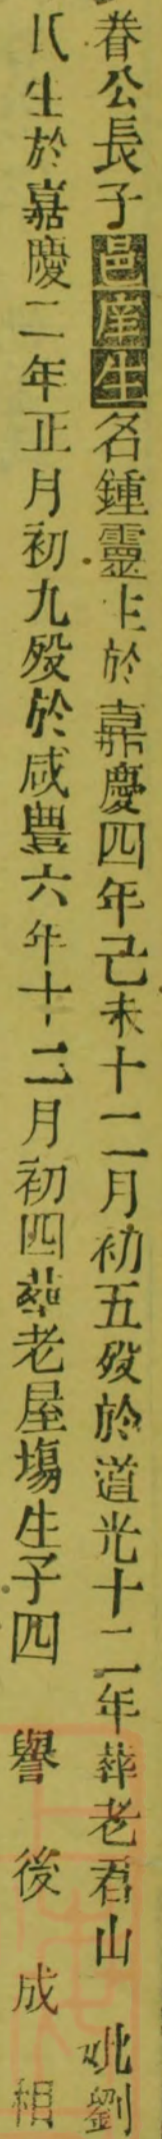 眷公長子邑庠生名鍾靈生於嘉慶四年己未十二月初五歿於道光十二年葬老君山 妣劉
氏生於嘉慶二年正月初九歿於咸豊六年十二月初四葬老屋塲生子四 譽 後 成 相